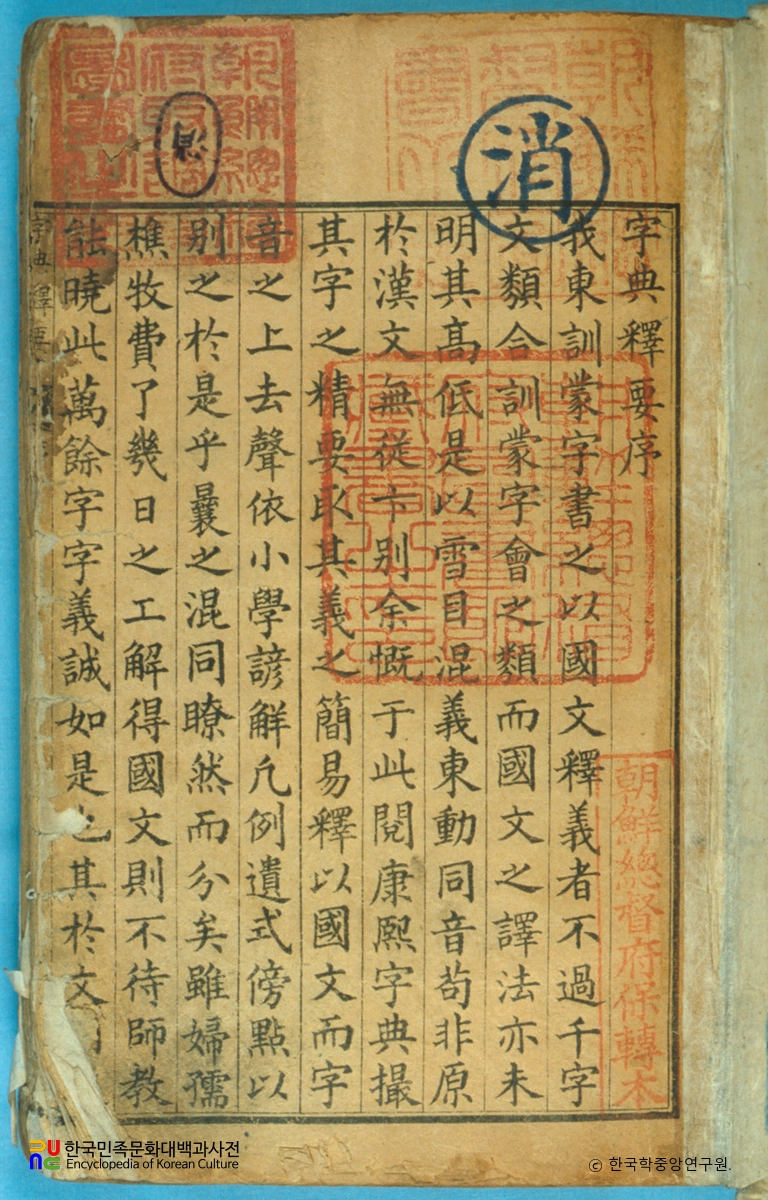 消
字典釋要序
我東訓蒙字書之以國文釋義者不過千字
文類合訓蒙字會之類而國文之譯法亦未
明其高低是以雪目混義東動同音苟非原
於漢文無從卞別余慨于此閱康熙字典撮
其字之精要取其義之簡易釋以國文而字
音之上去聲依小學諺解凡例遺式傍點以
別之於是乎曩之混同瞭然而分矣雖婦孺
樵牧費了幾日之工解得國文則不待師教
能曉此萬餘字字義誠如是也其於文
字典釋要
朝鮮總督府保轉本
한국민족문화대백과사전
Encyclopedia of Korean Culture
© 한국학중앙연구원.